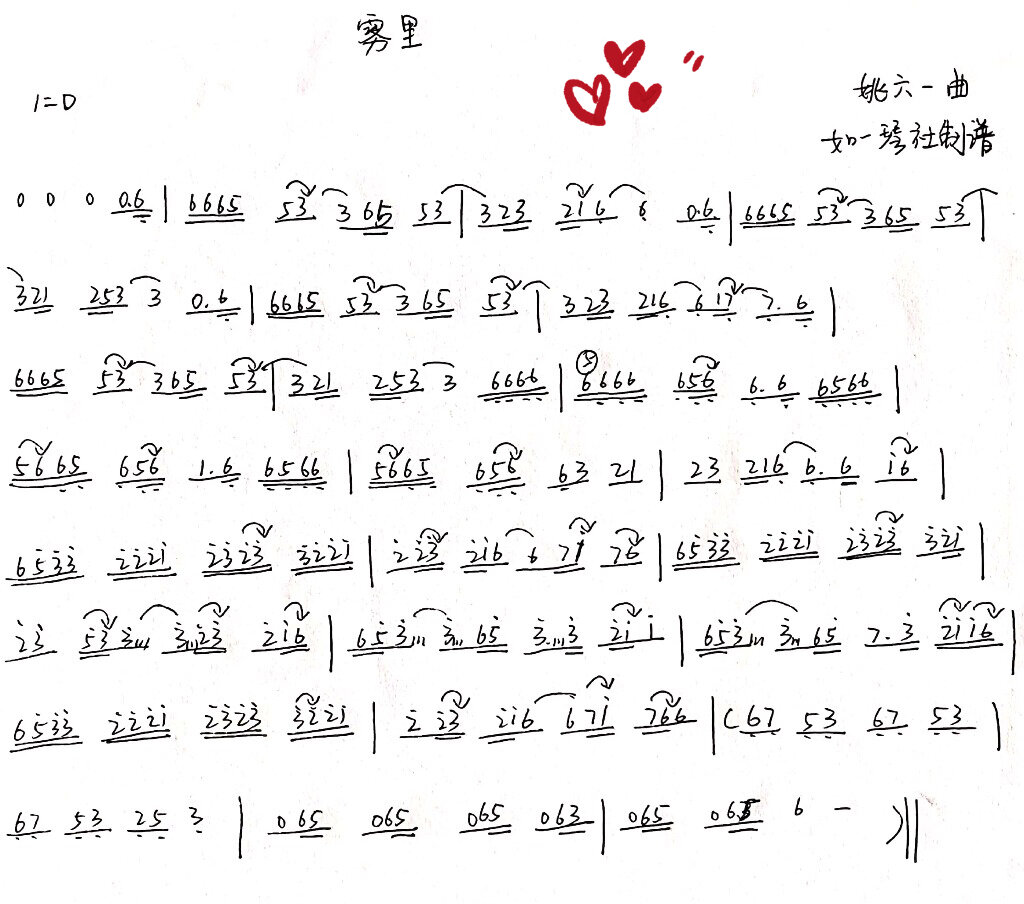 雾里
1=D
姚六一曲
如一琴社制谱
0 0 0 0.6 | 6665 53 365 53 | 323 216 6 0.6 | 6665 53 365 53 |
321 253 3 0.6 | 6665 53 365 53 | 323 216 617 7.6 |
6665 53 365 53 | 321 253 3 6666 | 6666 656 6.6 6566 |
5665 656 1.6 6566 | 5665 656 63 21 | 23 216 6.6 i6 |
6533 2221 2323 3221 | 223 216 6 71 76 | 6533 2221 2323 321 |
23 53 3... 3...23 216 | 653... 3...65 3...3 21 1 | 653... 3..65 7.3 2116 |
6533 2221 2323 3221 | 2 23 216 671 766 | (67 53 67 53 |
67 53 25 3 | 065 065 065 063 | 065 065 6 - )||